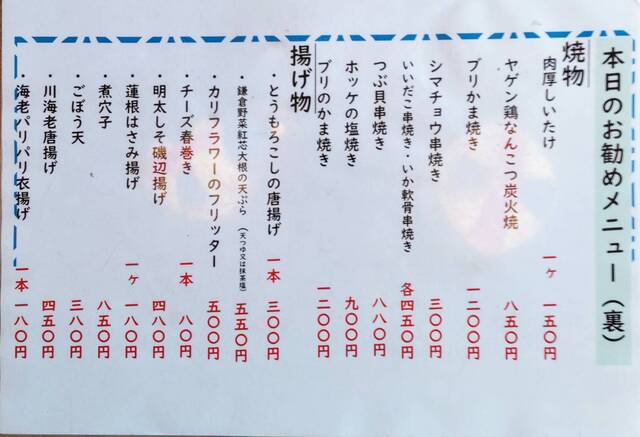 本日のお勧めメニュー(裏)
焼物
肉厚しいたけ 一ヶ 一五〇円
ヤゲン鶏なんこつ炭火焼 八五〇円
ブリかま焼き 一二〇〇円
シマチョウ串焼き 三〇〇円
いいだこ串焼き・いか軟骨串焼き 各四五〇円
つぶ貝串焼き 八八〇円
ホッケの塩焼き 九〇〇円
ブリのかま焼き 一二〇〇円
揚げ物
・とうもろこしの唐揚げ 一本 三〇〇円
・鎌倉野菜紅芯大根の天ぷら (天つゆ又は抹茶塩) 五五〇円
・カリフラワーのフリッター 五〇〇円
・チーズ春巻き 一本 八〇円
・明太しそ磯辺揚げ 四八〇円
・蓮根はさみ揚げ 一ヶ 一八〇円
・煮穴子 八五〇円
・ごぼう天 三八〇円
・川海老唐揚げ 四五〇円
・海老パリパリ衣揚げ 一本 一八〇円